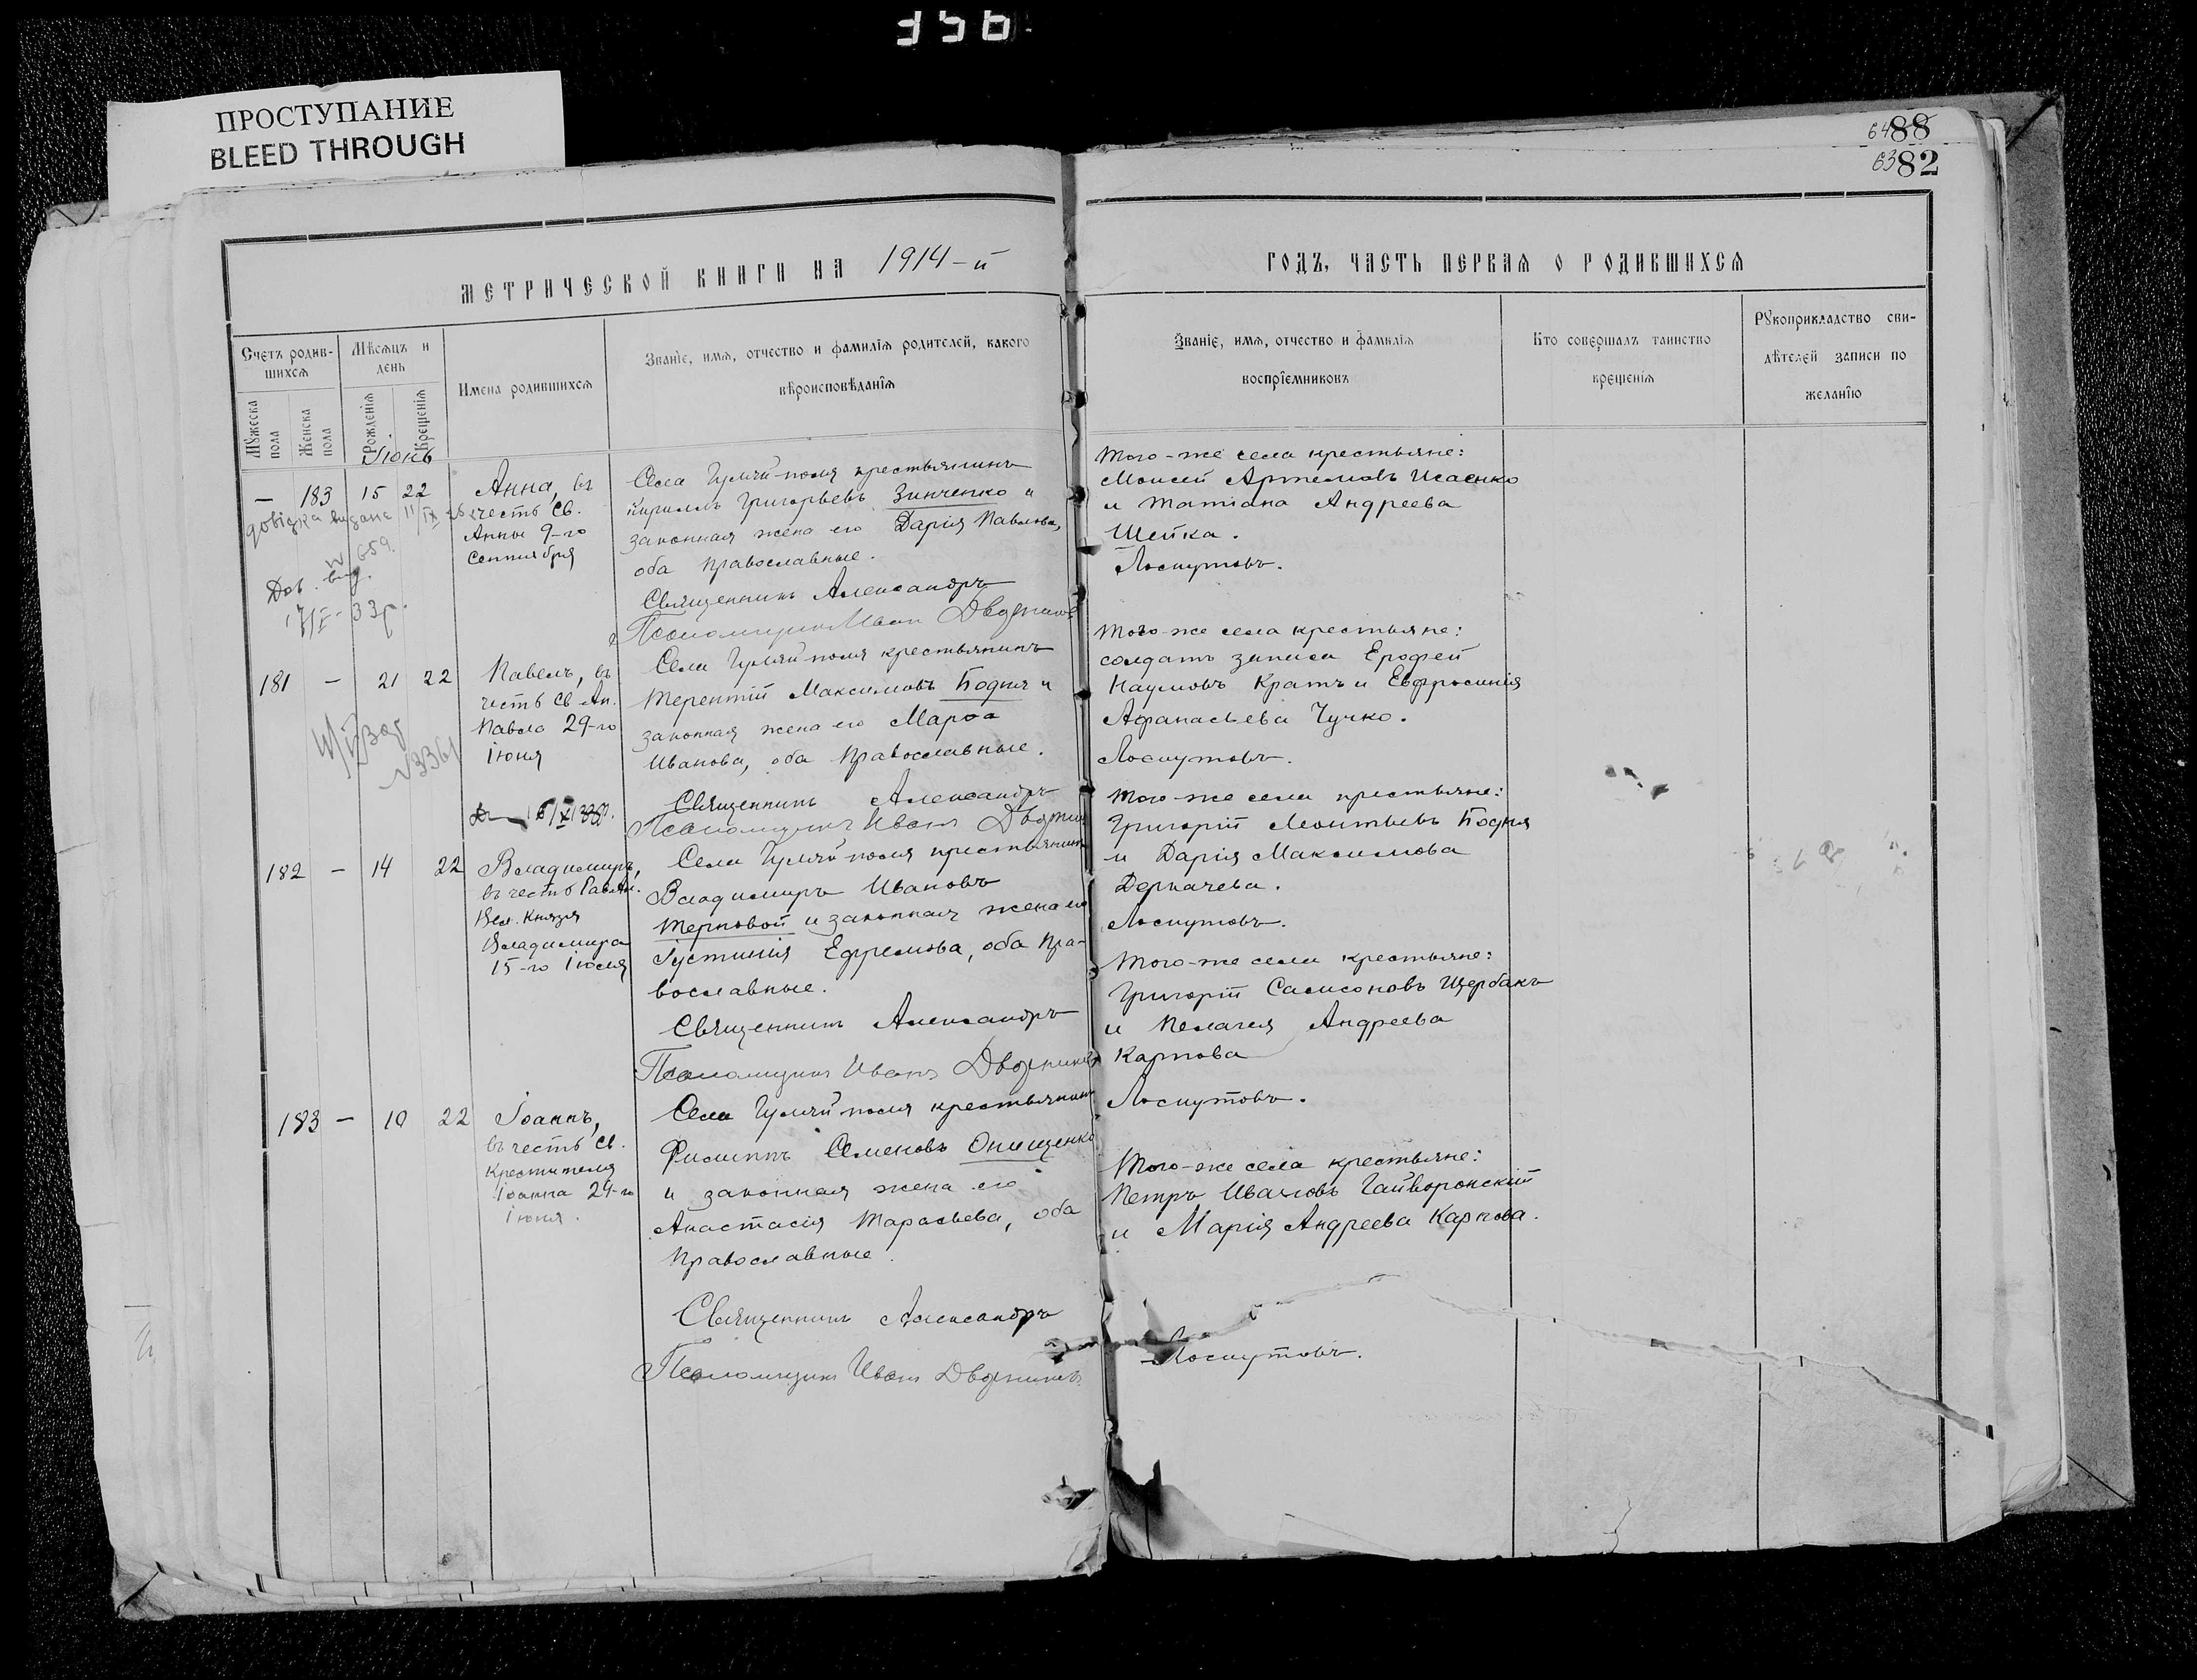 356.
ПРОСТУПАНИЕ
BLEED THROUGH
6488
6382
МЕТРИЧЕСКОЙ КНИГИ НА 1914-й
ГОДЪ, ЧАСТЬ ПЕРВАЯ О РОДИВШИХСЯ
Счетъ родив-
шихся
Мѣсяцъ и
день
Имена родившихся
Званіе, имя, отчество и фамилія родителей, какого
вѣроисповѣданія
Мужеска пола
Женска пола
Рожденія
Крещенія
Званіе, имя, отчество и фамилія
воспріемниковъ
Кто совершалъ таинство
крещенія
Рукоприкладство сви-
дѣтелей записи по
желанію
Іюнь
— 183 15 22
Анна, въ
честь Св.
Анны 9-го
Сентября
довідка видана 11/IX 26
N 659.
Дов. вид.
33р.
Села Гуляй-поля крестьянинъ
Кириллъ Григорьевъ Зинченко и
законная жена его Дарія Павлова,
оба православные.
Священникъ Александръ
Псаломщикъ Иван Дворников
Того-же села крестьяне:
Моисей Артемовъ Исаенко
и Татіана Андреева
Шейка.
Лоскутовъ.
181 — 21 22
Павелъ, въ
честь Св Ап.
Павла 29-го
Іюня
Села Гуляй поля крестьянинъ
Терентій Максимовъ Бодня и
законная жена его Марѳа
Иванова, оба православные.
Священникъ Александръ
Псаломщикъ Иванъ
Того-же села крестьяне:
солдатъ запаса Ерофей
Наумовъ Кратъ и Евфросинія
Афанасьева Чучко.
Лоскутовъ.
182 — 14 22
Владимиръ,
въ честь Равноап.
Вел. Князя
Владимира
15-го Іюля
Села Гуляй поля крестьянинъ
Владимиръ Ивановъ
Терновой и законная жена его
Іустинія Ефремова, оба пра-
вославные.
Священникъ Александръ
Псаломщикъ Иванъ Дворниковъ
Того-же села крестьяне:
Григорій Леонтьевъ Бодня
и Дарія Максимова
Деркачева.
Лоскутовъ.
183 — 10 22
Іоаннъ,
въ честь Св.
Крестителя
Іоанна 24-го
Іюня.
Села Гуляй поля крестьянинъ
Филиппъ Семеновъ Онищенко
и законная жена его
Анастасія Тарасьева, оба
православные.
Священникъ Александръ
Псаломщикъ Иванъ Дворниковъ
Того-же села крестьяне:
Григорій Самсоновъ Щербакъ
и Пелагея Андреева
Карпова
Лоскутовъ.
Того-же села крестьяне:
Петръ Ивановъ Гайворонскій
и Марія Андреева Карпова.
Лоскутовъ.